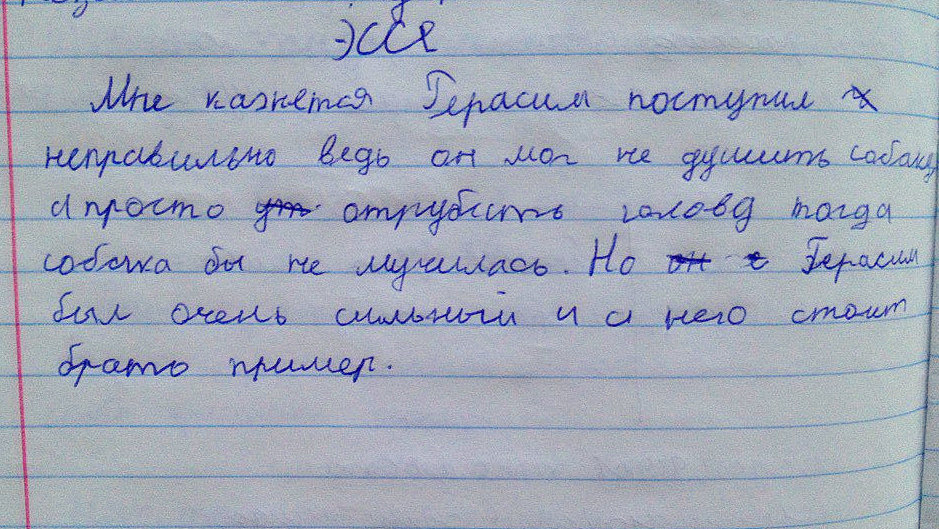 ЭССЕ
Мне кажется Герасим поступил
неправильно ведь он мог не душить собаку
а просто отрубить голову тогда
собака бы не мучилась. Но Герасим
был очень сильный и с него стоит
брать пример.